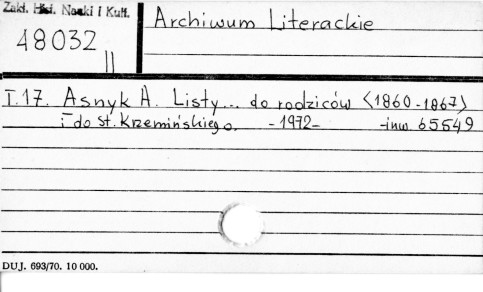 Zakł. Hist. Nauki i Kult.
48032
II
Archiwum Literackie
T.17. Asnyk A. Listy... do rodziców <1860-1867>
i do St. Krzemińskiego. -1972- -inw. 65549
DUJ. 693/70. 10 000.